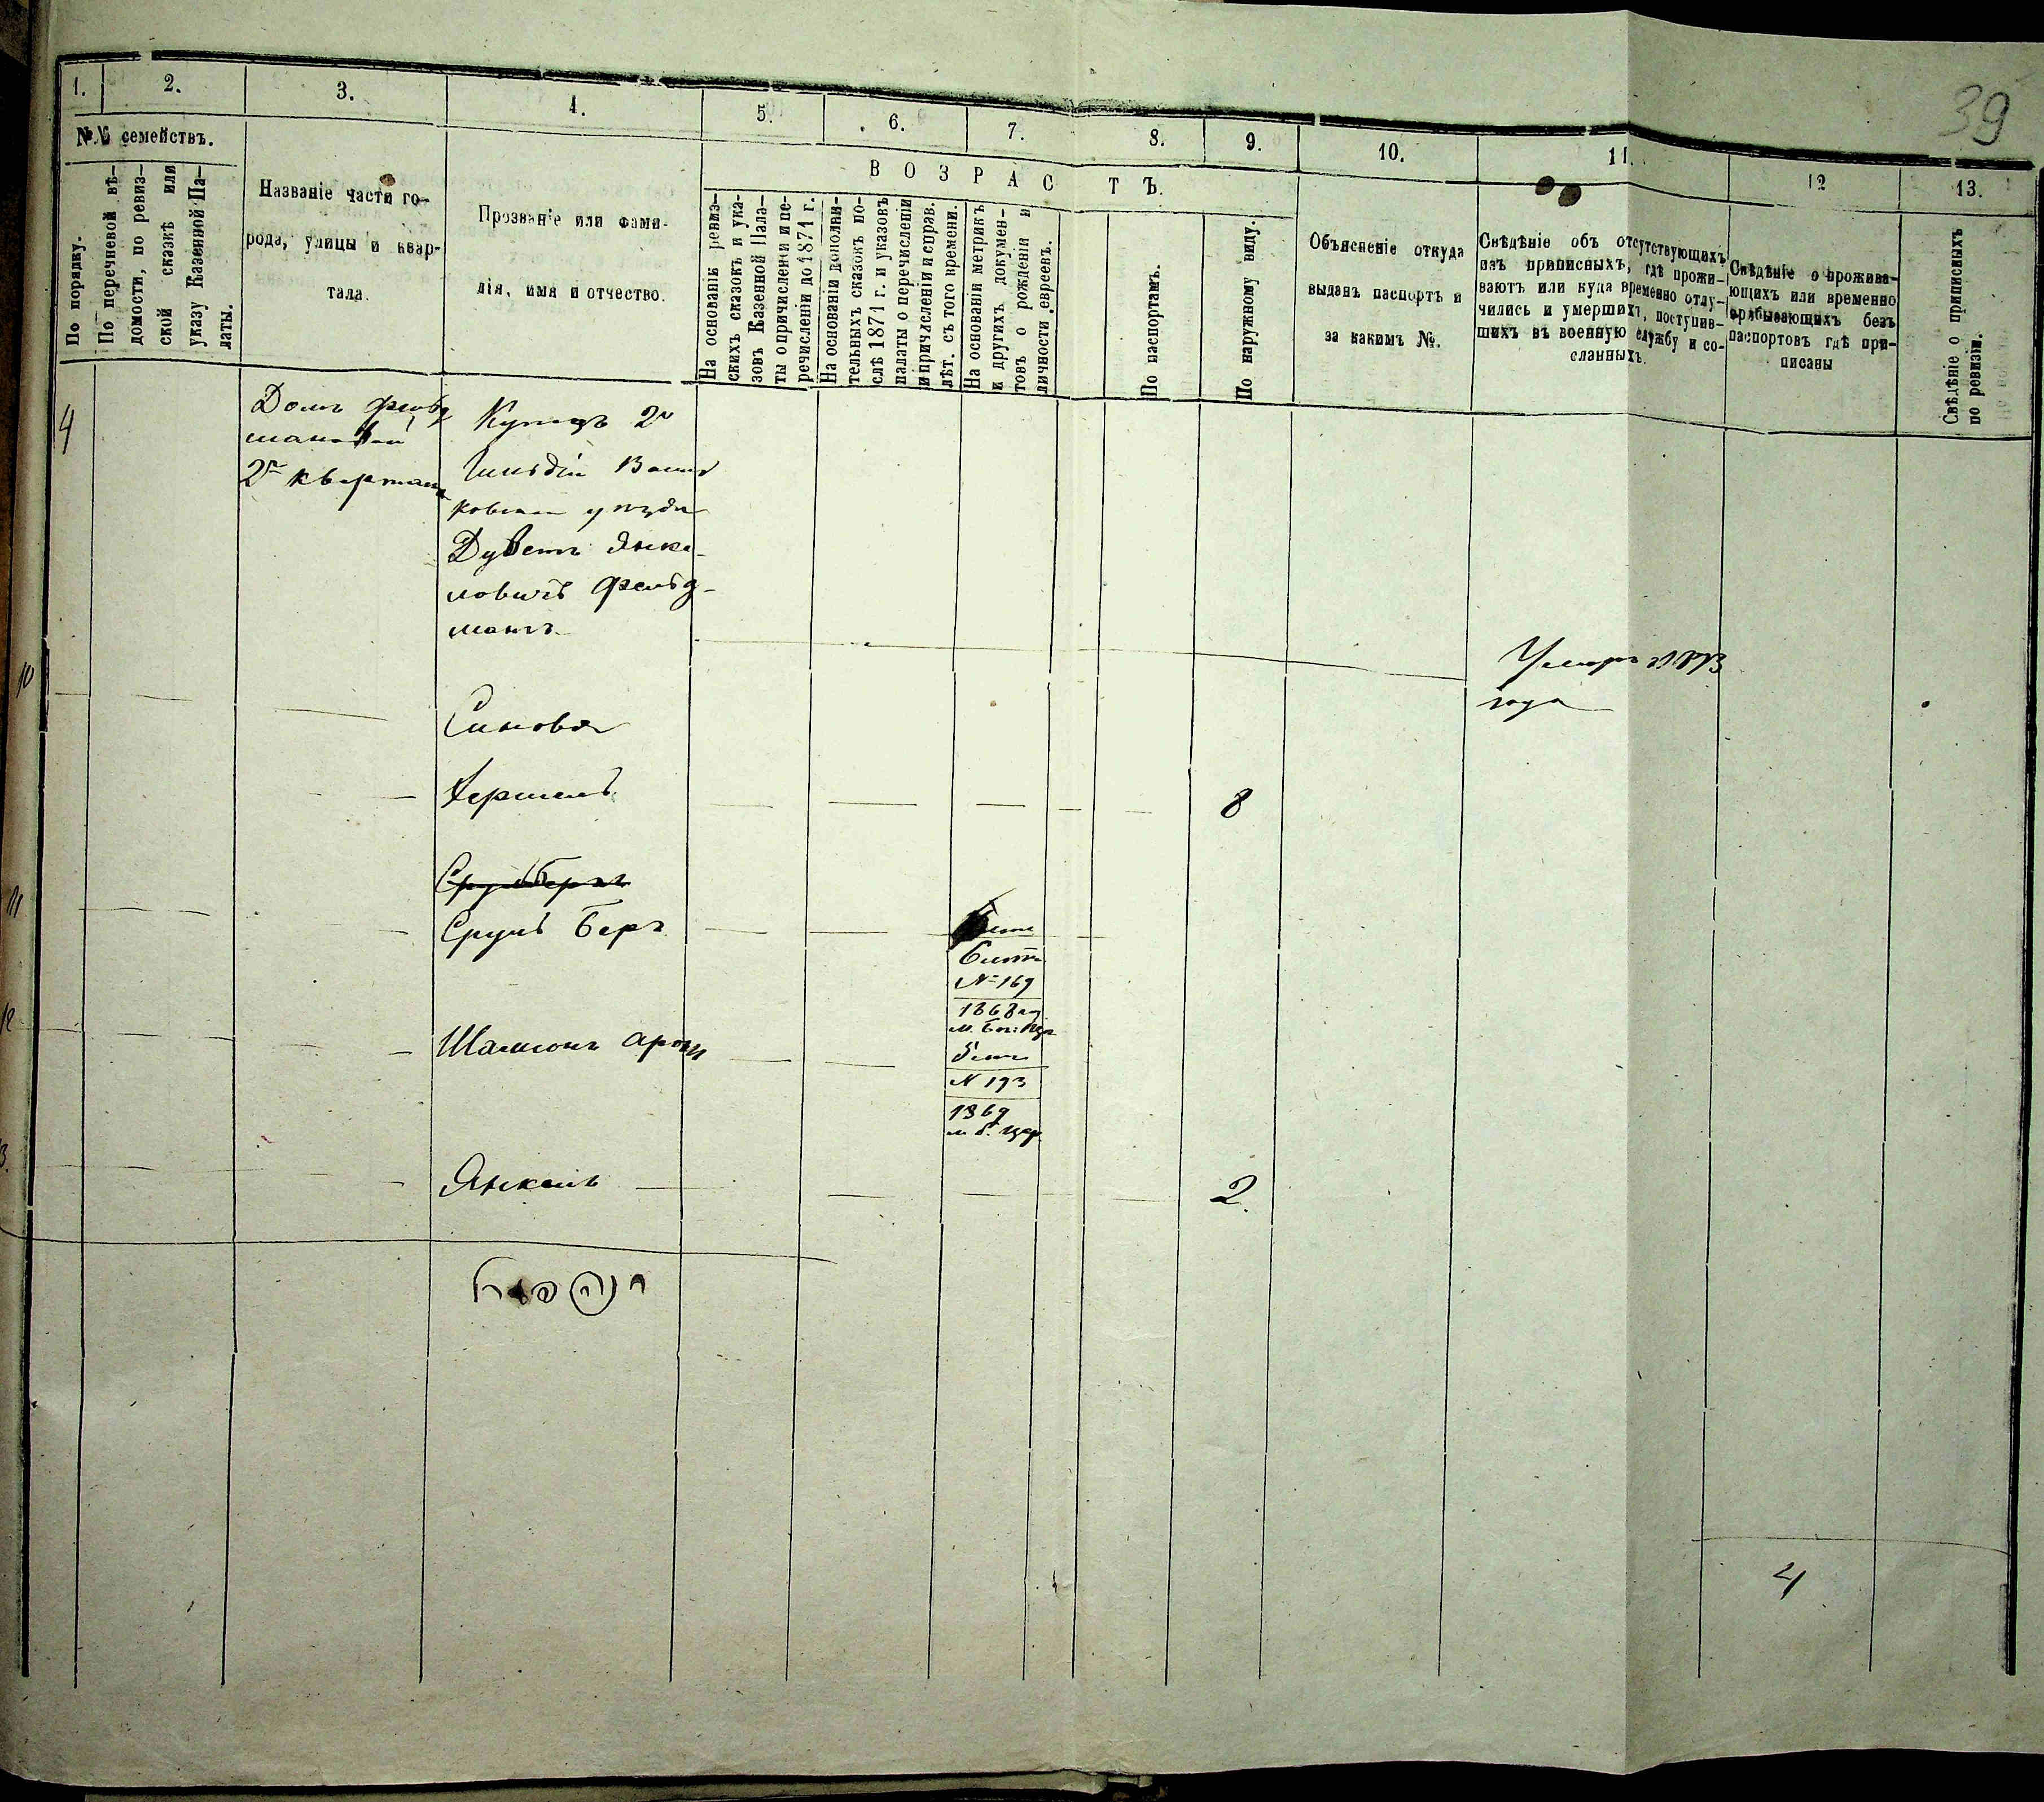 39
1.
2.
3.
4.
5.
6.
7.
8.
9.
10.
11.
12
13.
№№ семействъ.
По порядку.
По перечневой вѣ-
домости, по ревиз-
ской сказкѣ или
указу Казенной Па-
латы.
Названіе части го-
рода, улицы и квар-
тала.
Прозваніе или фами-
лія, имя и отчество.
ВОЗРАСТЪ.
На основаніи ревиз-
скихъ сказокъ и ука-
зовъ Казенной Пала-
ты о причисленіи и пе-
речисленіи до 1871 г.
На основаніи дополни-
тельныхъ сказокъ по-
слѣ 1871 г. и указовъ
палаты о перечисленіи
и причисленіи и справ.
лѣт. съ того времени.
На основаніи метрикъ
и другихъ докумен-
товъ о рожденіи и
личности евреевъ.
По паспортамъ.
По наружному виду.
Объясненіе откуда
выданъ паспортъ и
за какимъ №.
Свѣдѣніе объ отсутствующихъ
изъ приписныхъ, гдѣ прожи-
ваютъ или куда временно отлу-
чились и умершихъ, поступив-
шихъ въ военную службу и со-
сланныхъ.
Свѣдѣніе о прожива-
ющихъ или временно
прибывающихъ безъ
паспортовъ гдѣ при-
писаны
Свѣдѣніе о приписныхъ
по ревизіи.
4
Домъ Фельд
мановой
2го квартала
Купецъ 2й
Гильдіи Василь
ковскаго уѣзда
Дуветъ Янке-
ловичъ Фельд-
манъ
10
Умеръ 1873
года
Синовя
Гершель
8
Срульберъ
11
Сруль Беръ
6 летъ
№ 169
1868 год
12
Шамсонъ Аронъ
5 летъ
№ 193
1869
м. б. Цер
13.
Янкель
2.
4